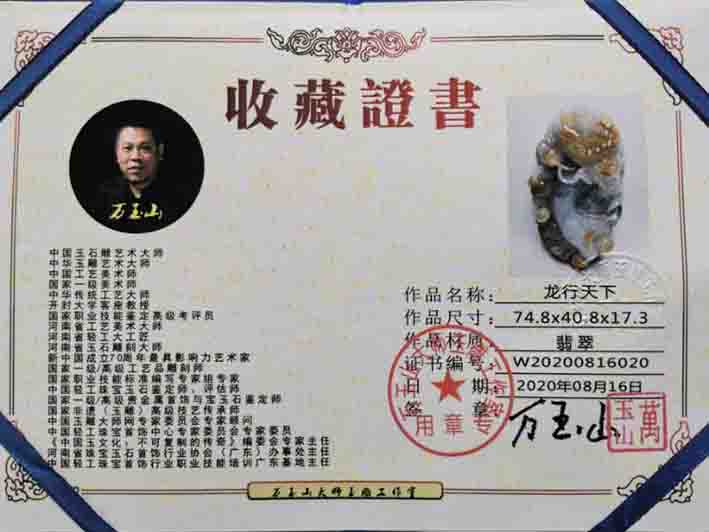 收藏證書
万玉山
中国玉石雕艺术大师
中华玉雕艺术大师
中国工艺美术师
国家一级美术师
中华传统工艺大师
开封大学客座教授
国家职业技能鉴定高级考评员
河南省工艺美术大师
河南省轻工大工匠
河南省玉石雕刻大师
新中国成立70周年最具影响力艺术家
国家一级/高级工艺品雕刻师
国家职业技能标准编写专家组专家
中国轻工珠宝玉石鉴定师、评估师
国家一级/高级贵金属首饰与宝玉石鉴定师
国家非遗（玉雕）高级技艺传承师
中国玉雕大师网专家委员会专家顾问
中国轻工珠宝首饰中心专家委员会专家委员
《中国玉文化，不可复制的传奇》编委会专家主任
河南省珠宝玉石首饰行业协会（广东）办事处主任
中国轻工珠宝首饰行业职业技能培训广东基地主任
作品名称：龙行天下
作品尺寸：74.8x40.8x17.3
作品材质：翡翠
证书编号：W20200816020
日期：2020年08月16日
签章：万玉山
萬玉山
专用章
万玉山大师玉雕工作室